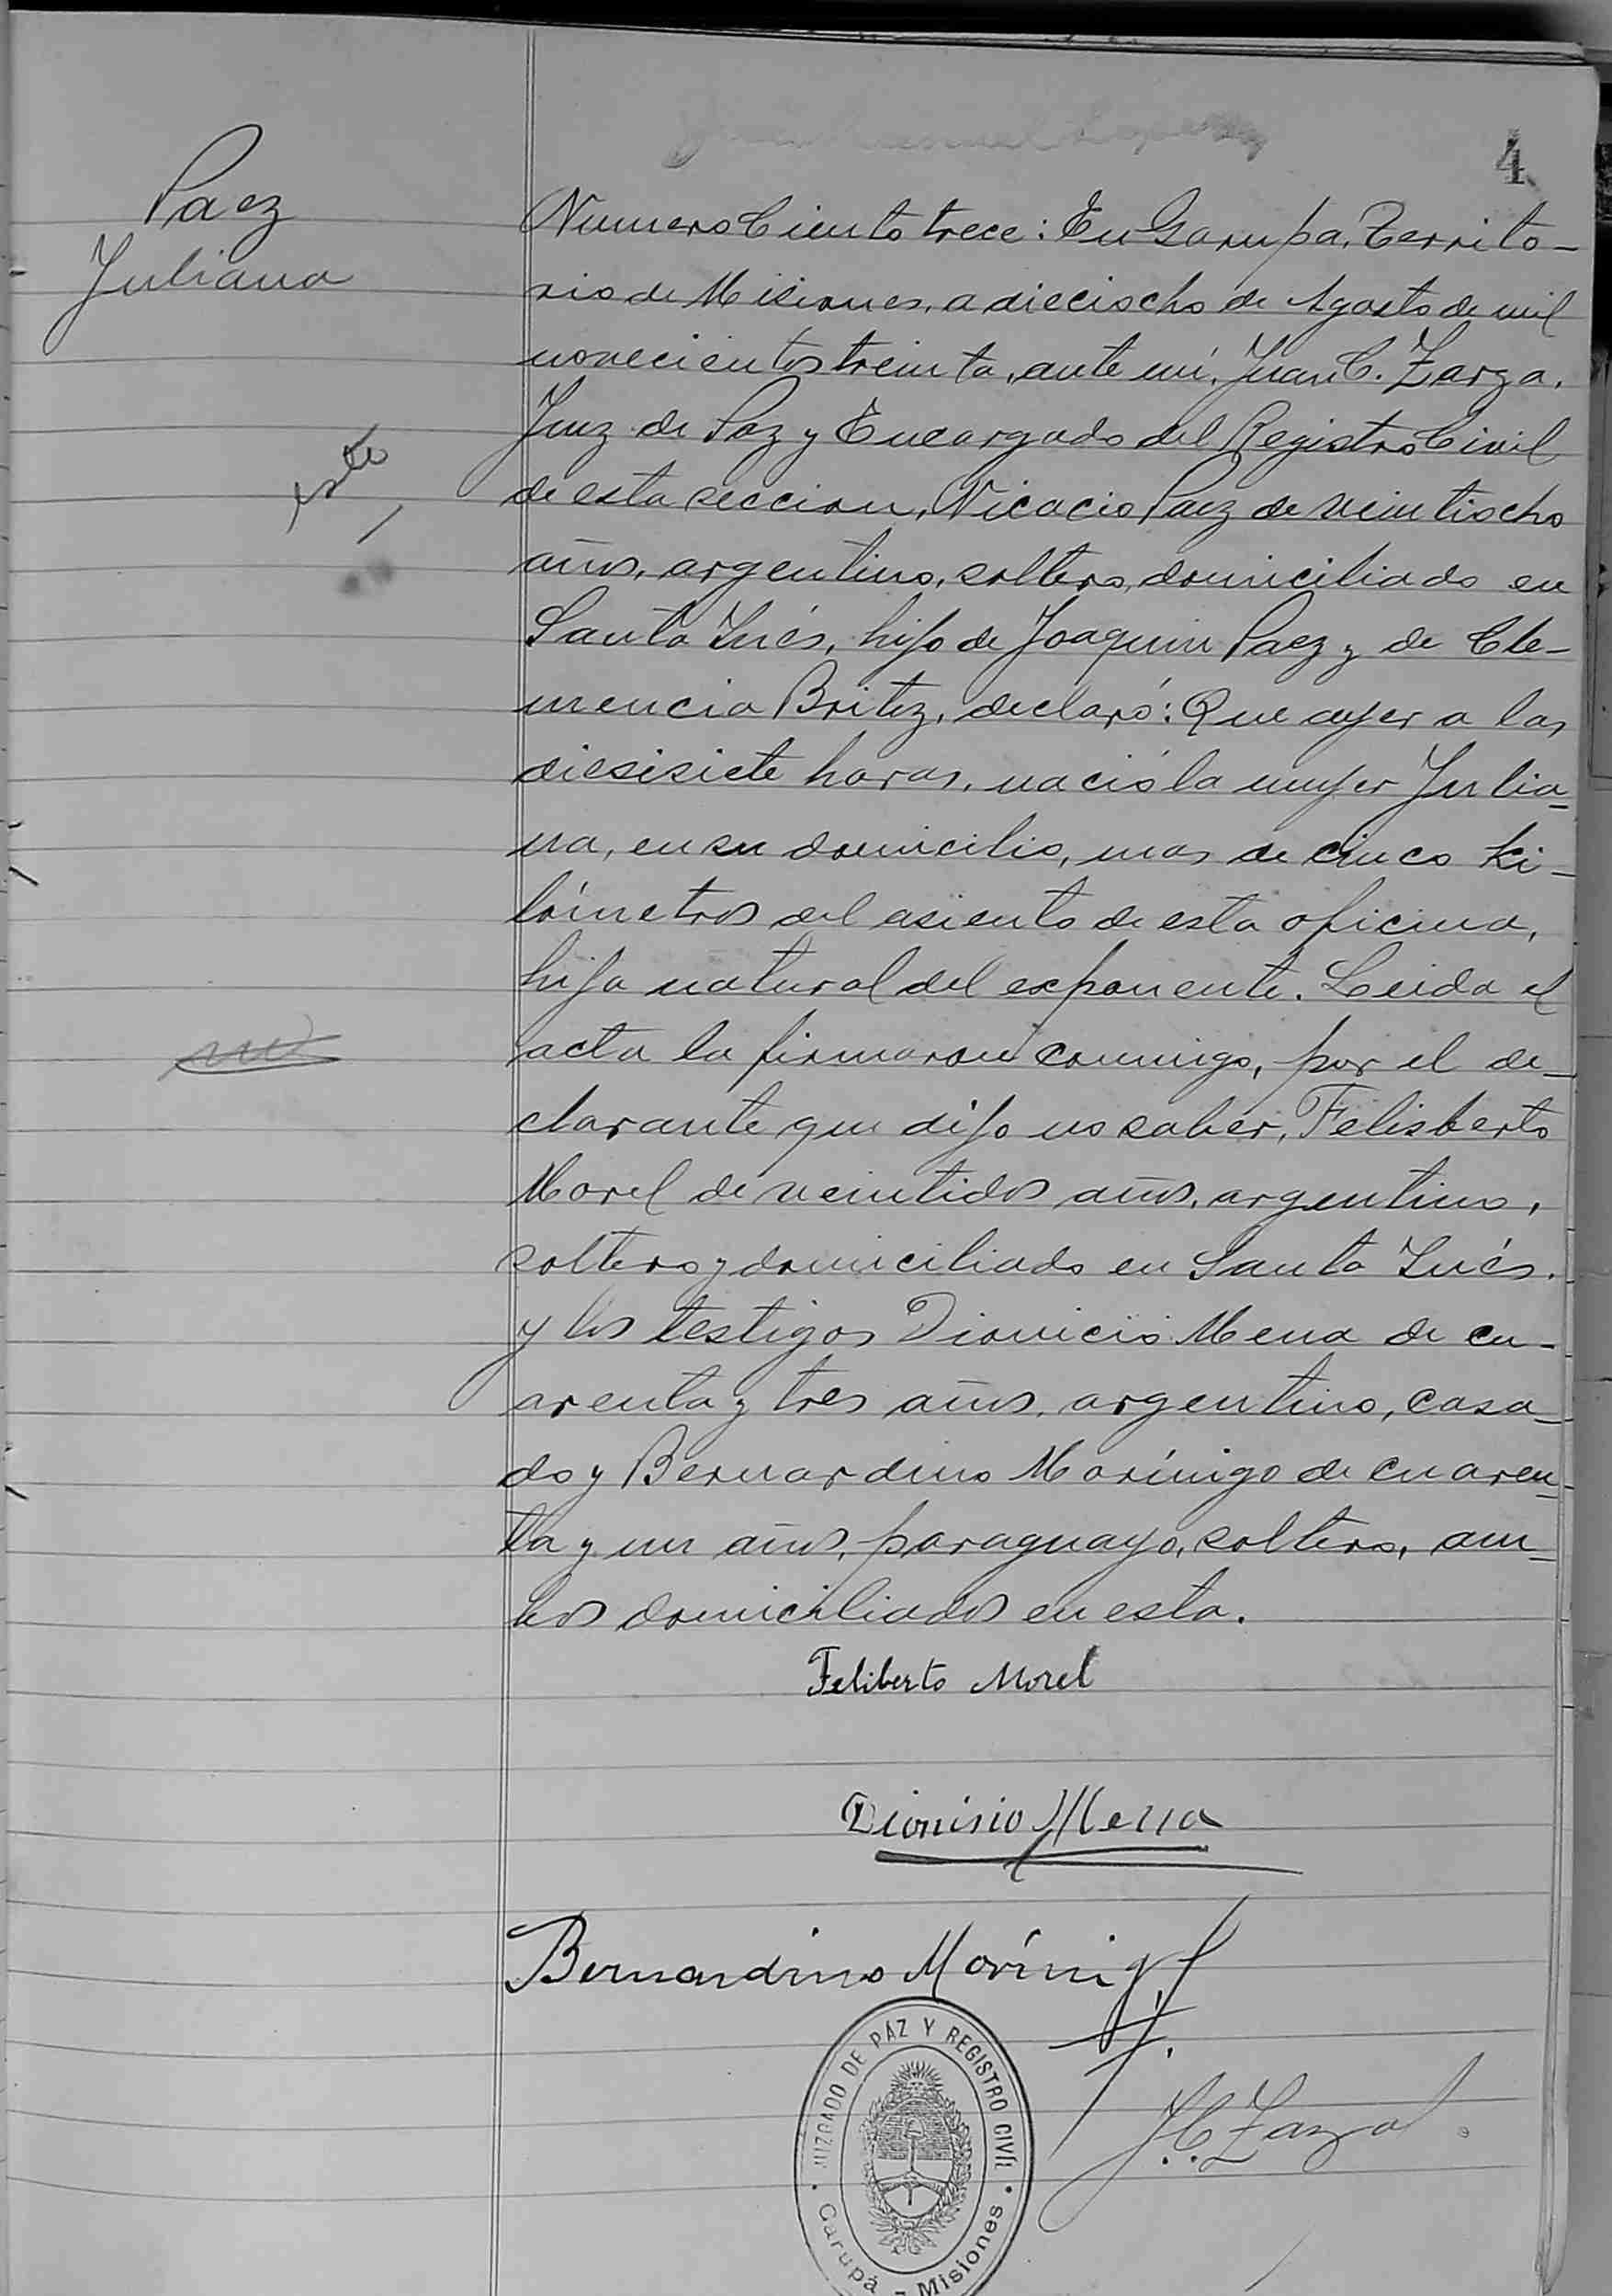 4
Paez
Juliana
Numero Ciento trece: En Garupa, Territo-
rio de Misiones, a dieciocho de Agosto de mil
novecientos treinta, ante mí, Juan C. Zarza,
Juez de Paz y Encargado del Registro Civil
de esta seccion, Nicacio Paez de veintiocho
años, argentino, soltero, domiciliado en
Santa Inés, hijo de Joaquin Paez y de Cle-
mencia Britez, declaró: Que ayer a las
diesisiete horas, nació la mujer Julia-
na, en su domicilio, mas de cinco ki-
lómetros del asiento de esta oficina,
hija natural del exponente. Leida el
acta la firmaron conmigo, por el de-
clarante que dijo no saber, Felisberto
Morel de veintidos años, argentino,
soltero y domiciliado en Santa Inés.
y los testigos Dionicio Mena de cu-
arenta y tres años, argentino, casa-
do y Bernardino Morínigo de cuaren-
ta y un años, paraguayo, soltero, am-
bos domiciliados en esta.
Feliberto Morel
Dionisio Mena
Bernardino Morínigo
J.C. Zarza
JUZGADO DE PÁZ Y REGISTRO CIVIL
Garupá - Misiones